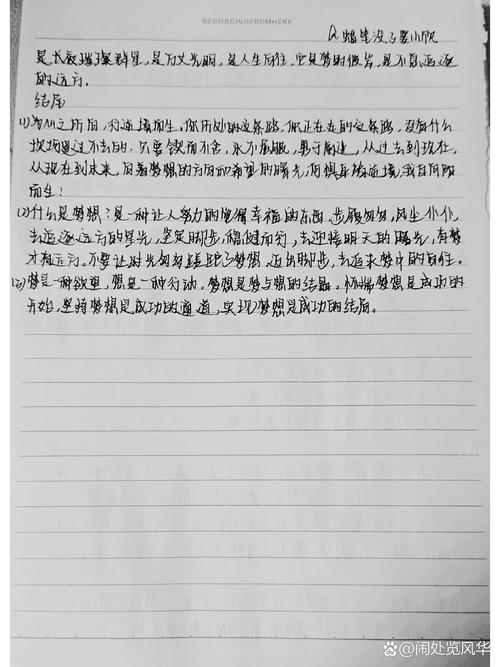 RECORDINGFROMHERE
是长夜璀璨群星，是万丈光明，是人生向往，它是梦的彼岸，是不息追逐
的远方。
结尾
(1)为心之所向，行逆境而生。你历处的这条路，你正在走的这条路，没有什么
坎坷是过不去的，只要锲而不舍，永不屈服，勇于前进，从过去到现在，
从现在到未来，向着梦想的方向和希望的曙光，何惧身披逆境，我自向阳
而生！
(2)什么是梦想？是一种让人努力的 幸福的东西，步履匆匆，风尘仆仆，
去追逐远方的星光，坚定脚步，稳健而行，去迎接明天的曙光，有梦
才有远方。不要让时光匆匆 了梦想，迈出脚步，去追求梦中的自任。
(3)梦是一种欲望，想是一种行动。梦想是梦与想的结晶。怀揣梦想是成功的
开始，坚持梦想是成功的通道，实现梦想是成功的结局。
@闹处览风华